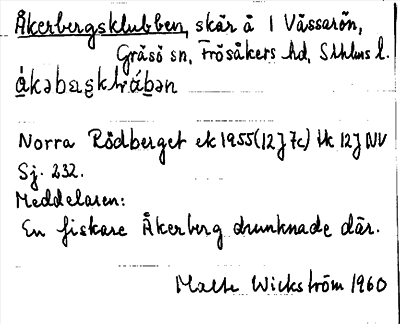 Åkerbergsklubben, skär å I Vässarön,
Gräsö sn, Frösåkers hd, Sthlms l.
Norra Rödberget ek 1955 (12J 7c) tk 12J NV
Sj. 232.
Meddelaren:
En fiskare Åkerberg drunknade där.
Malte Wickström 1960